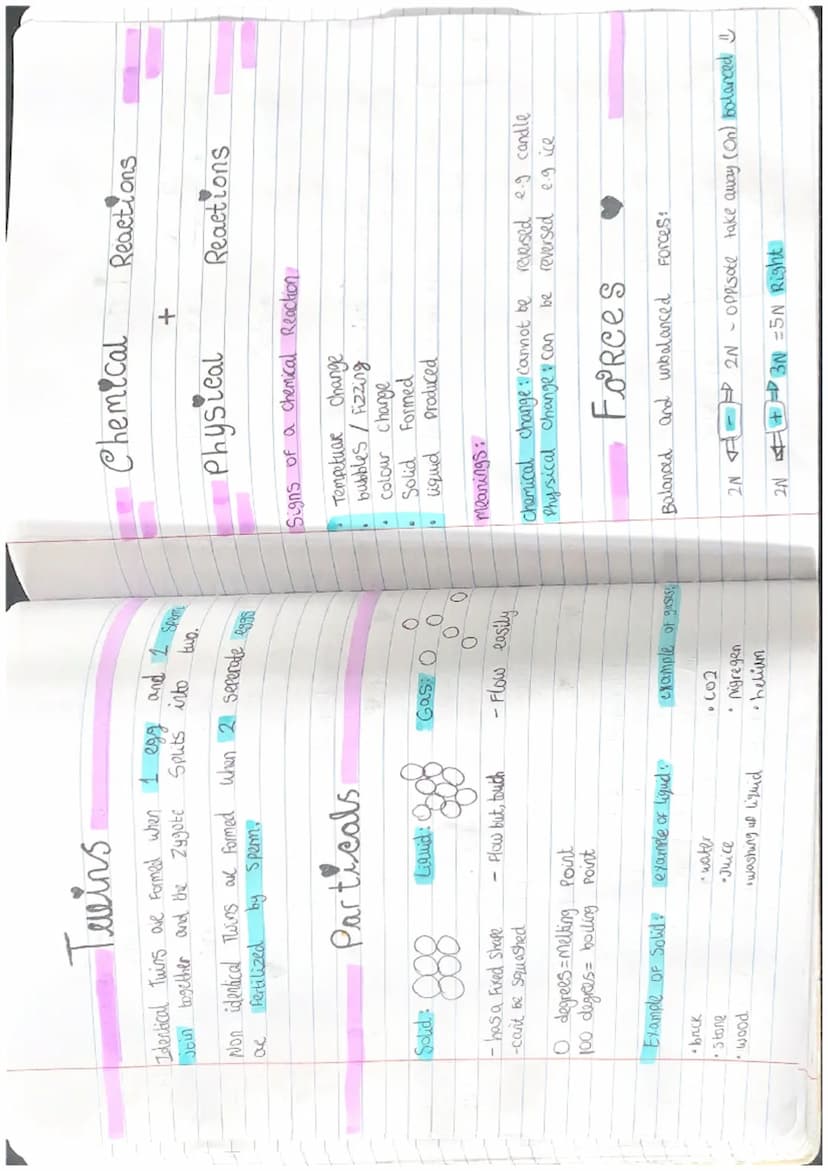 Twins
Identical Twins are formed when 1 egg and 1 sperm
Join together and the zygote splits into two.
Non identical Twins are formed when 2 seperate eggs
are fertilized by sperm.
Particals
Solid: Liquid: Gas:
- has a fixed shape - Flow but, touch - Flow easily
- can't be squashed
0 degrees = melting point
100 degrees = boiling point
Example of Solid: example of liquid: example of gases:
• brick • water • CO2
• Stone • Juice • nigregen
• wood • washing up liquid • helium
Chemical Reactions
+
Physical Reactions
Signs of a chemical Reaction
• Tempetuar change
• bubbles / Fizzing
• colour change
• Solid Formed
• Liquid produced
Meanings:
Chemical change: cannot be reversed e.g candle
Physical change: can be reversed e.g ice
Forces
Balanced and unbalanced Forces:
2N - 2N - oppisote take away (0n) balanced
2N + 3N = 5N Right